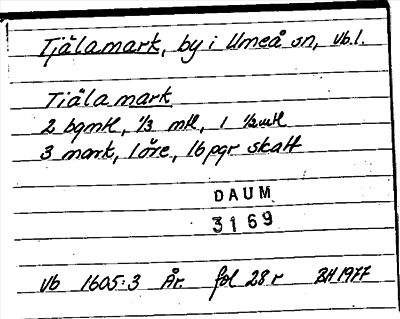 Tjälamark, by i Umeå sn, Vb.l.
Tiälamark
2 bgmtl, 1/3 mtl, 1 1/2mtl
3 mark, 1 öre, 16 pgr skatt
DAUM
3169
Vb 1605:3 År. fol 28 r BH 1977